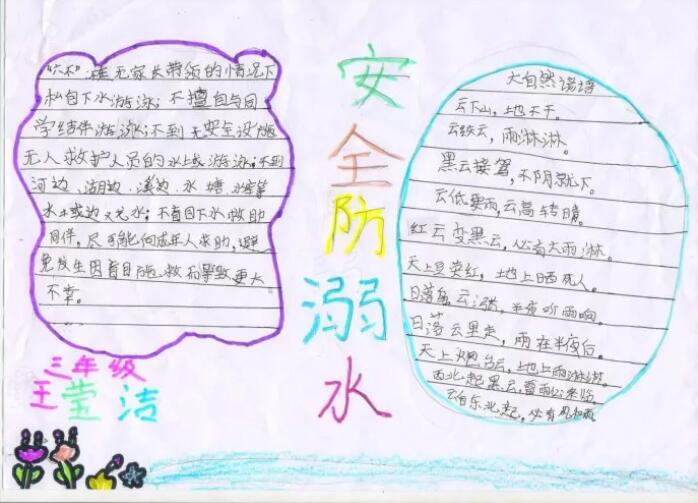 “六不”:在无家长带领的情况下
私自下水游泳;不擅自与同
学结伴游泳;不到无安全设施
无人救护人员的水域游泳;不到
河边、湖边、溪边、水塘、水
水
同伴,尽可能向成年人求助,避
免发生因盲目施救而导致更大
不幸。
三年级
王莹洁
安全防溺水
大自然谚语
云下山,地不干。
云绞云,雨淋淋。
黑云接驾,不阴就下。
云低要雨,云高转晴。
红云变黑云,必有大雨淋。
天上豆荚红,地上晒死人。
日落乌云涨,半夜听雨响。
日落云里走,雨在半夜后。
天上
西北起黑云,雷雨必来临